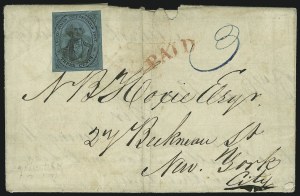 PAID
3
N B Hoxie Esqr.
27 Beekman St
New York
City